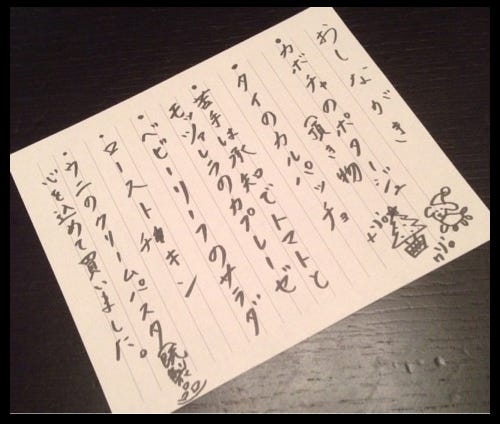 おしながき
・カボチャのポタージュ
（頂き物）
・タイのカルパッチョ
・苦手は承知でトマトと
モッツァレラのカプレーゼ
・ベビーリーフのサラダ
・ローストチキン
・ウニのクリームパスタ
心を込めて買いました。